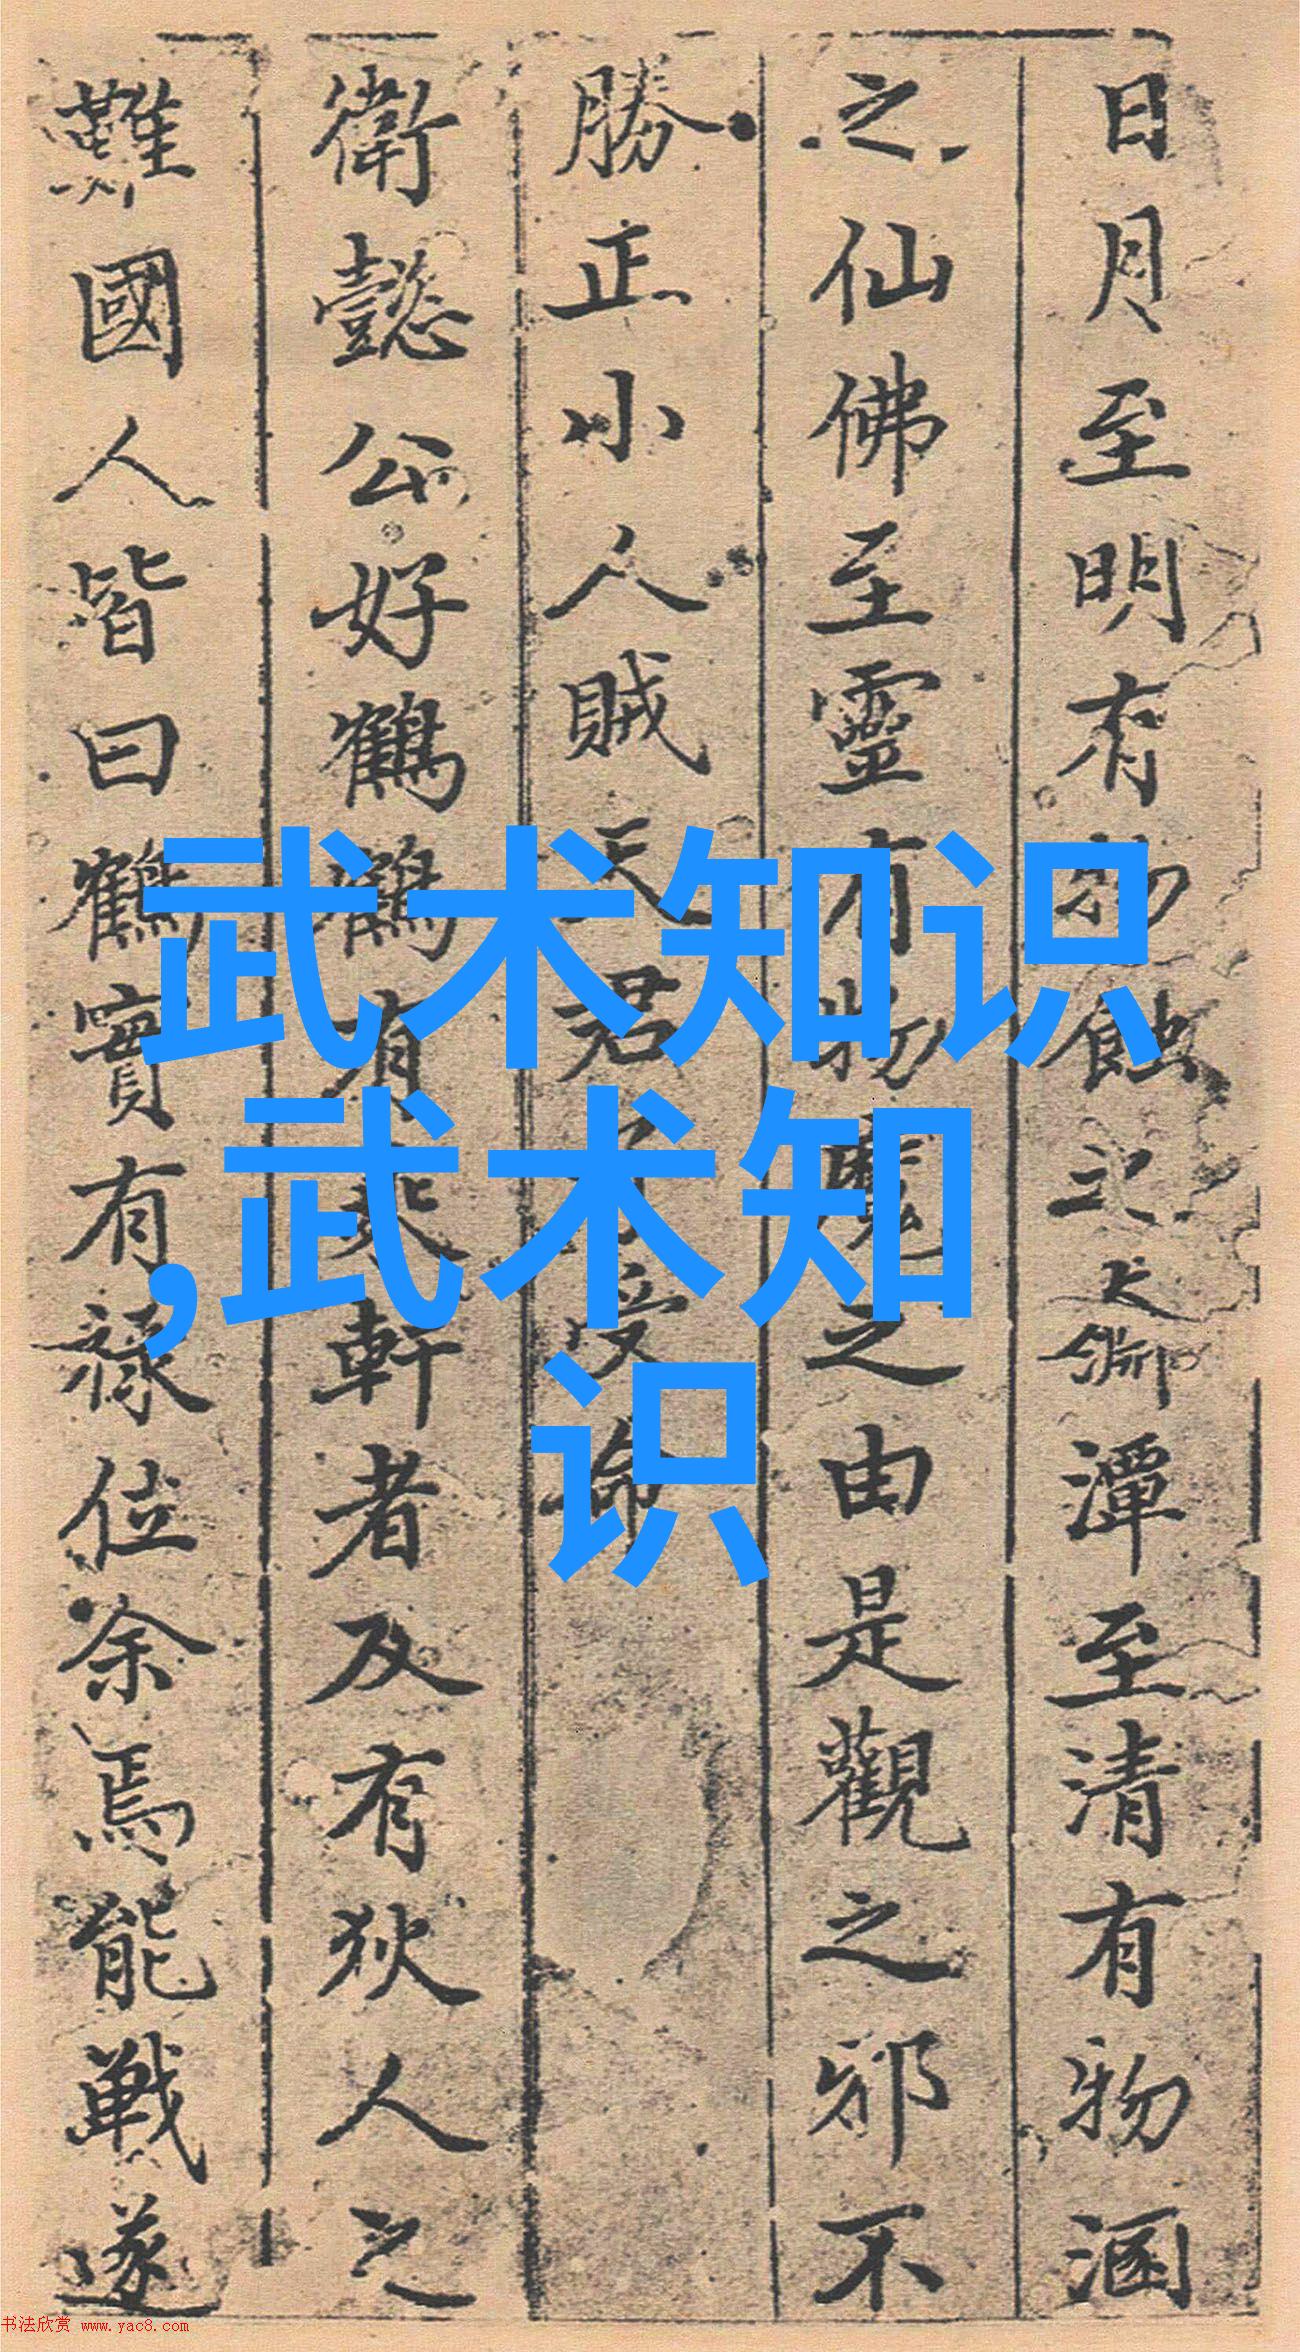 日月至明有物蝕之大潭至清有物涵
之仙佛至靈有物魔之由是觀之邪不
勝正小人賊天君受命
衛懿公好鶴鶴有乘軒者及有狄人之
難國人皆曰鶴實有祿位余焉能戰遂
武术知识
,武术知
识
书法欣赏 www.yac8.com